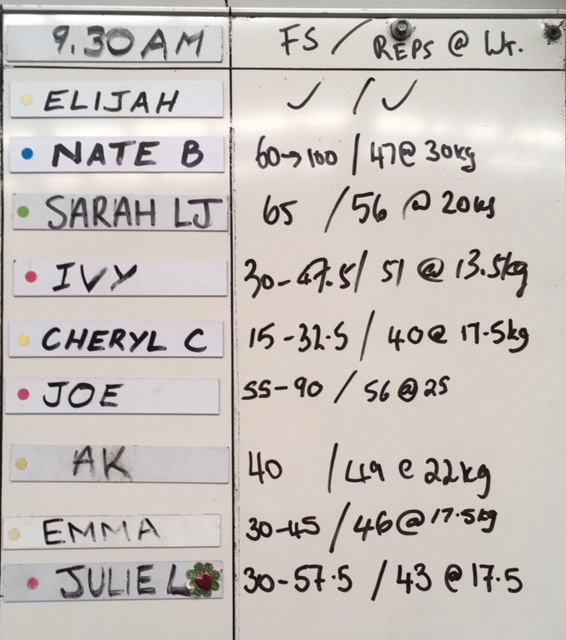 9.30AM FS / REPS @ Wt.
ELIJAH ✓ / ✓
NATE B 60→100 / 47@ 30kg
SARAH LJ 65 / 56 @ 20kg
IVY 30-47.5 / 51 @ 13.5kg
CHERYL C 15-32.5 / 40@ 17.5kg
JOE 55-90 / 56 @ 25
AK 40 / 49 @ 22kg
EMMA 30-45 / 46@17.5kg
JULIE L 30-57.5 / 43 @ 17.5